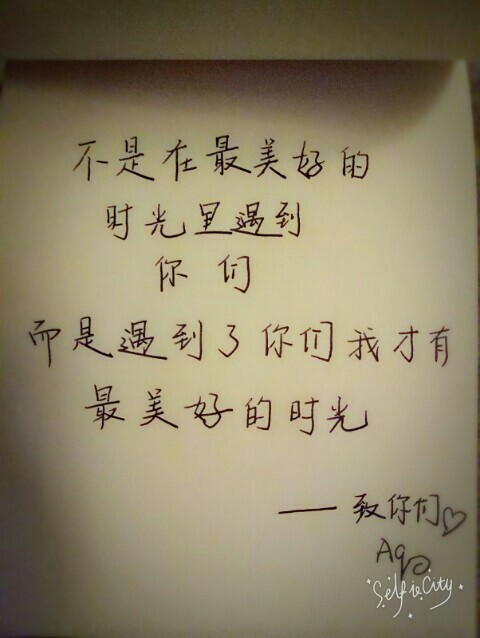 不是在最美好的
时光里遇到
你们
而是遇到了你们我才有
最美好的时光
——致你们♡
SelfieCity